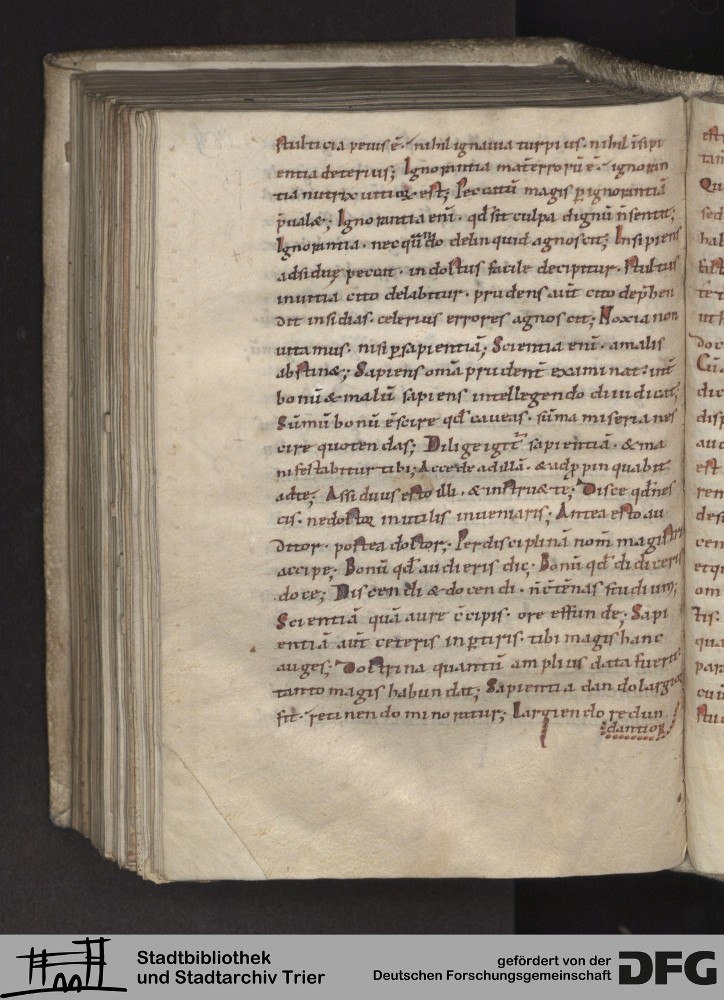 stulticia peius ē· nihil ignauia turpius· nihil īsipi
entia deterius; Ignorantia mat̄ errorū ē· ignoran
tia nutrix uitioꝝ est; Peccatū magis ꝑ ignorantiā
p̄ual&; Ignorantia enī· qd̄ sit culpa dignū n̄ sentit;
Ignorantia· nec quando delinquid agnoscit; Insipiens
adsidue peccat· indoctus facile decipitur· stultus
in uitia cito delabitur· prudens aūt cito dep̄hen
dit insidias· celerius errores agnoscit; Noxia non
uitamus· nisi ꝑ sapientiā; Scientia enī· a malis
abstin&; Sapiens om̄a prudent̄ examinat· int̄
bonū & malū sapiens intellegendo diiudicat;
Sūmū bonū ē scire qd̄ caueas· sūma miseria nes
cire quo tendas; Dilige igit̄ sapientiā· & ma
nifestabitur tibi; Accede ad illā· & adꝓpinquabit
ad te; Assiduus esto illi· & instru& te; Disce qd̄ nes
cis· ne doctor inutilis inueniaris; Antea esto au
ditor· postea doctor; Per disciplinā nom̄ magistri
accipe; Bonū qd̄ audieris dic; Bonū qd̄ didiceris
doce; Discendi & docendi· n̄ c̄tēnas studium;
Scientiā quā aure c̄cipis· ore effunde; Sapi
entiā aūt ceteris inꝑtiris· tibi magis hanc
auges; Doctrina quantū amplius data fuerit
tanto magis habundat; Sapientia dando largior
fit· retinendo minoratur; Largiendo redun
dantior
Stadtbibliothek
und Stadtarchiv Trier
gefördert von der
Deutschen Forschungsgemeinschaft
DFG